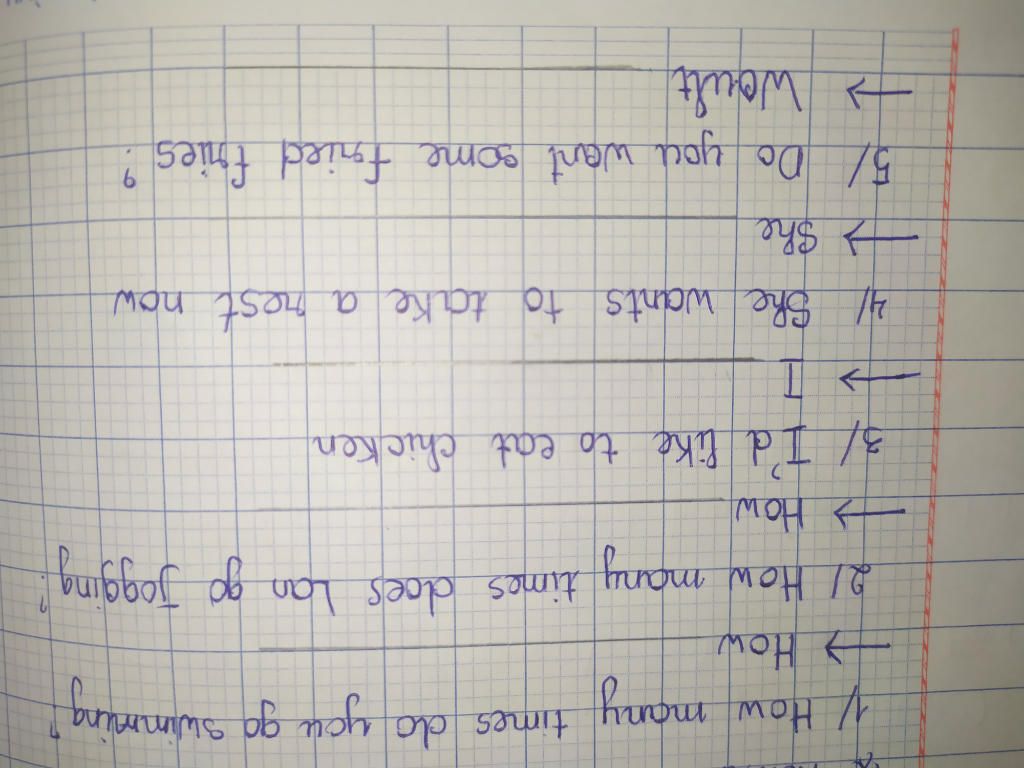 1/ How many times do you go swimming?
→ How
2/ How many times does Lan go Jogging?
→ How
3/ I'd like to eat chicken
→ I
4/ She wants to take a rest now
→ She
5/ Do you want some fried fries?
→ Would